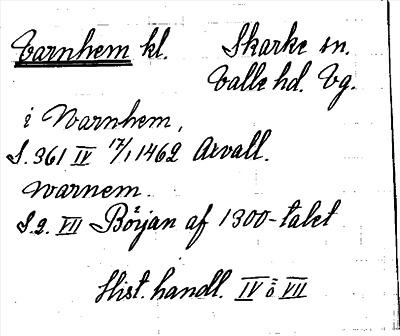 Varnhem kl. Skarke sn.
Valle hd. Vg.
i Warnhem,
S. 361 IV 17/1 1462 Arvall.
warnem.
S. 2. VII Början af 1300-talet
Hist. handl. IV o VII